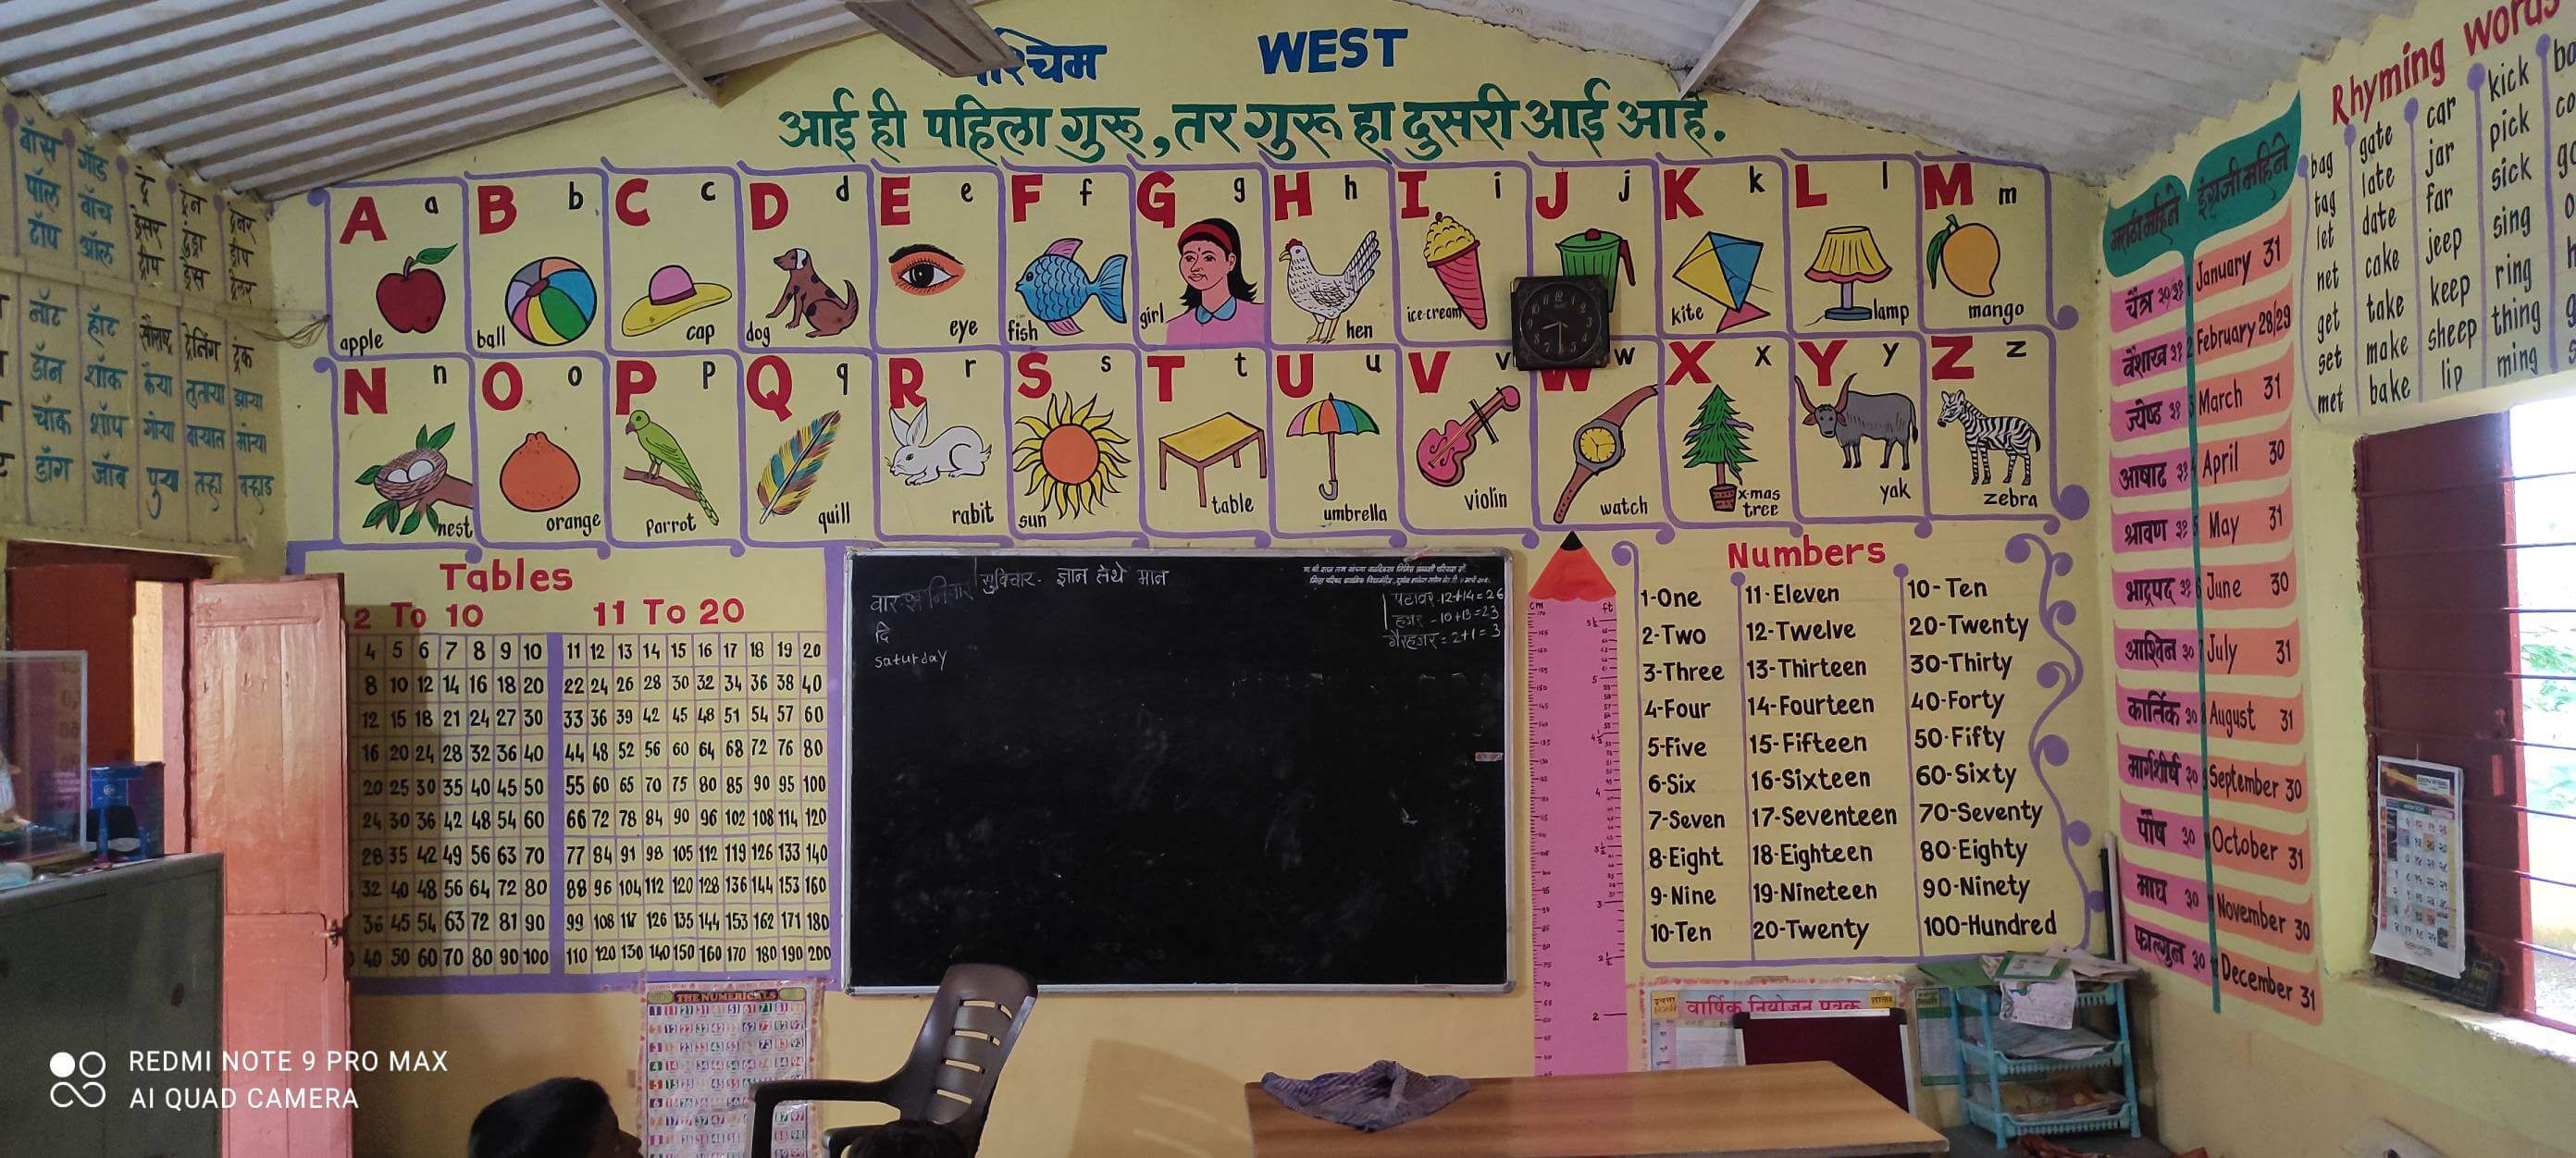 पश्चिम WEST
आई ही पहिला गुरू, तर गुरू हा दुसरी आई आहे.
A a apple
B b ball
C c cap
D d dog
E e eye
F f fish
G g girl
H h hen
I i ice cream
J j
K k kite
L l lamp
M m mango
N n nest
O o orange
P p Parrot
Q q quill
R r rabit
S s sun
T t table
U u umbrella
V v violin
W w watch
X x x-mas tree
Y y yak
Z z zebra
बॉस गॉड ट्रे ट्रेन ट्रेनर
पॉल वॉच
टॉप ऑल ट्रीप ड्रेस ट्रेलर
नॉट हॉट सौराष्ट्र ट्रेलिंग ट्रंक
डॉन शॉक कैऱ्या तुताऱ्या झाऱ्या
चॉक शॉप गोऱ्या वाऱ्यात मोऱ्या
डॉग जॉब पुऱ्या तऱ्हा वऱ्हाड
Tables
2 To 10 11 To 20
4 5 6 7 8 9 10 11 12 13 14 15 16 17 18 19 20
8 10 12 14 16 18 20 22 24 26 28 30 32 34 36 38 40
12 15 18 21 24 27 30 33 36 39 42 45 48 51 54 57 60
16 20 24 28 32 36 40 44 48 52 56 60 64 68 72 76 80
20 25 30 35 40 45 50 55 60 65 70 75 80 85 90 95 100
24 30 36 42 48 54 60 66 72 78 84 90 96 102 108 114 120
28 35 42 49 56 63 70 77 84 91 98 105 112 119 126 133 140
32 40 48 56 64 72 80 88 96 104 112 120 128 136 144 153 160
36 45 54 63 72 81 90 99 108 117 126 135 144 153 162 171 180
40 50 60 70 80 90 100 110 120 130 140 150 160 170 180 190 200
वार-शनिवार सुविचार- ज्ञान तेथे मान
दि
saturday
पटावर-12+14=26
हजर -10+13=23
गैरहजर = 2+1=3
cm ft
Numbers
1-One 11-Eleven 10-Ten
2-Two 12-Twelve 20-Twenty
3-Three 13-Thirteen 30-Thirty
4-Four 14-Fourteen 40-Forty
5-Five 15-Fifteen 50-Fifty
6-Six 16-Sixteen 60-Sixty
7-Seven 17-Seventeen 70-Seventy
8-Eight 18-Eighteen 80-Eighty
9-Nine 19-Nineteen 90-Ninety
10-Ten 20-Twenty 100-Hundred
मराठी महिने इंग्रजी महिने
चैत्र 1 January 31
वैशाख ३१ 2 February 28/29
ज्येष्ठ ३१ 3 March 31
आषाढ ३१ 4 April 30
श्रावण ३१ 5 May 31
भाद्रपद ३१ 6 June 30
आश्विन ३० 7 July 31
कार्तिक ३० 8 August 31
मार्गशीर्ष ३० 9 September 30
पौष ३० October 31
माघ ३० November 30
फाल्गुन ३० December 31
Rhyming words
bag gate car kick
tag late jar pick
let date far sick
net cake jeep sing
get take keep ring
set make sheep thing
met bake lip ming
THE NUMERICALS
वार्षिक नियोजन पत्रक
REDMI NOTE 9 PRO MAX
AI QUAD CAMERA